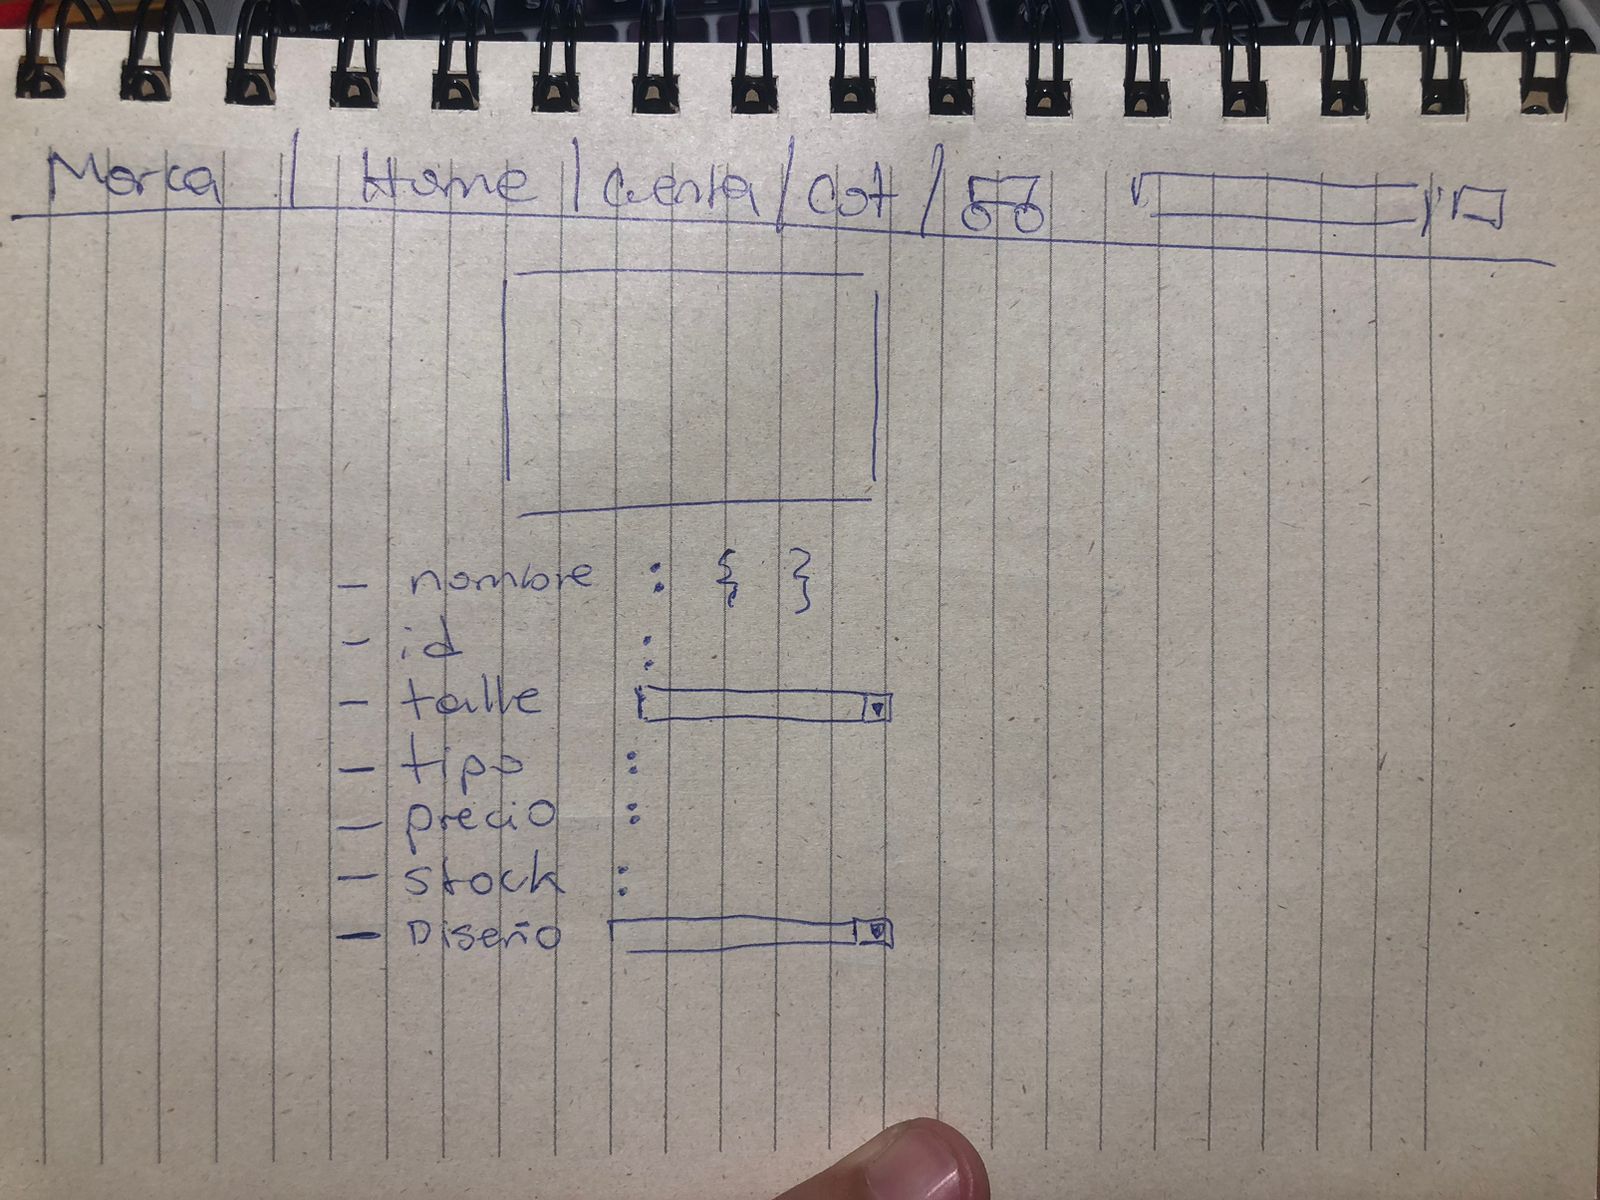 Marca / Home / cuenta / Cat /
- nombre : { }
- id :
- talle
- tipo :
- precio :
- stock :
- Diseño